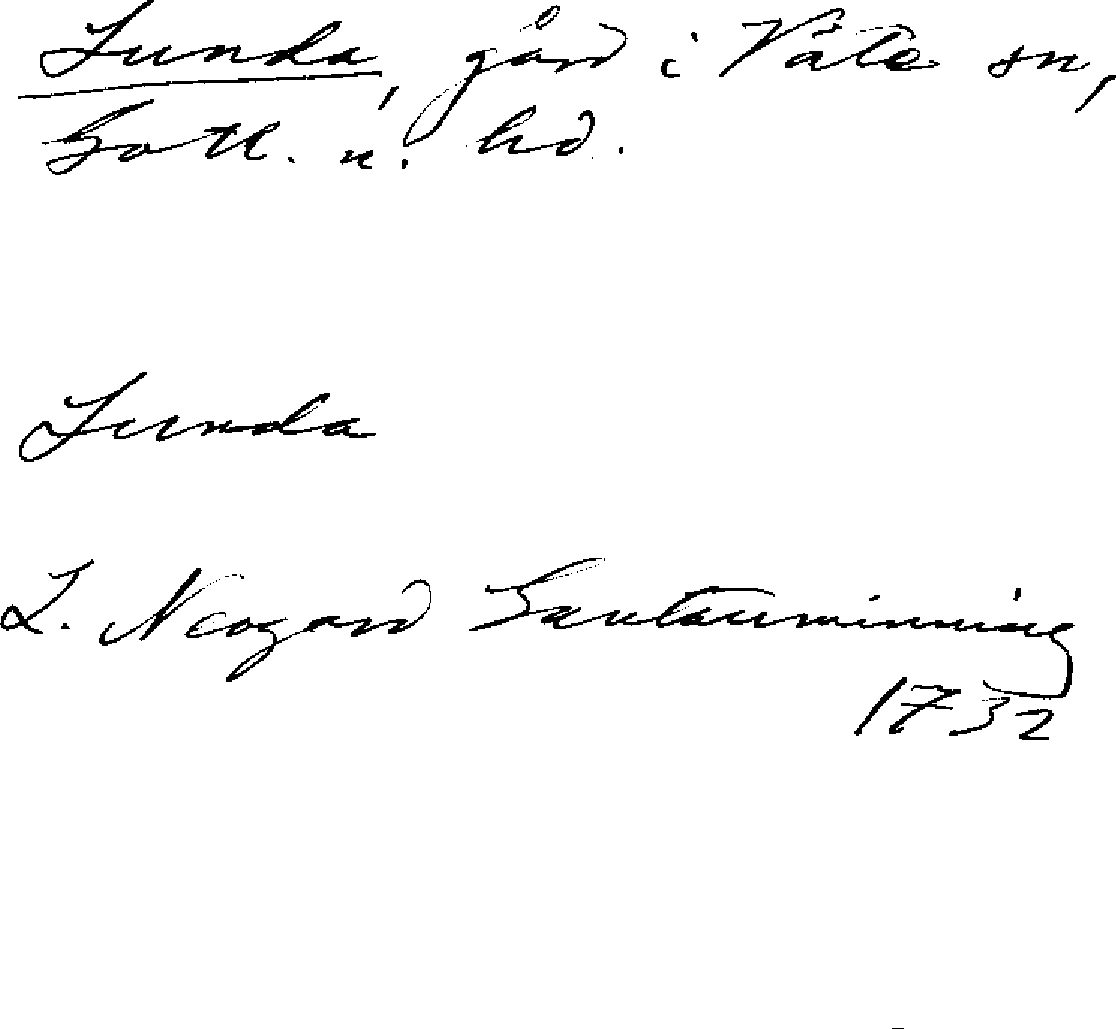 Lunda, gård i Väte sn,
Gotl. n. hd.
Lunda
L. Neogard Gautauminning
1732